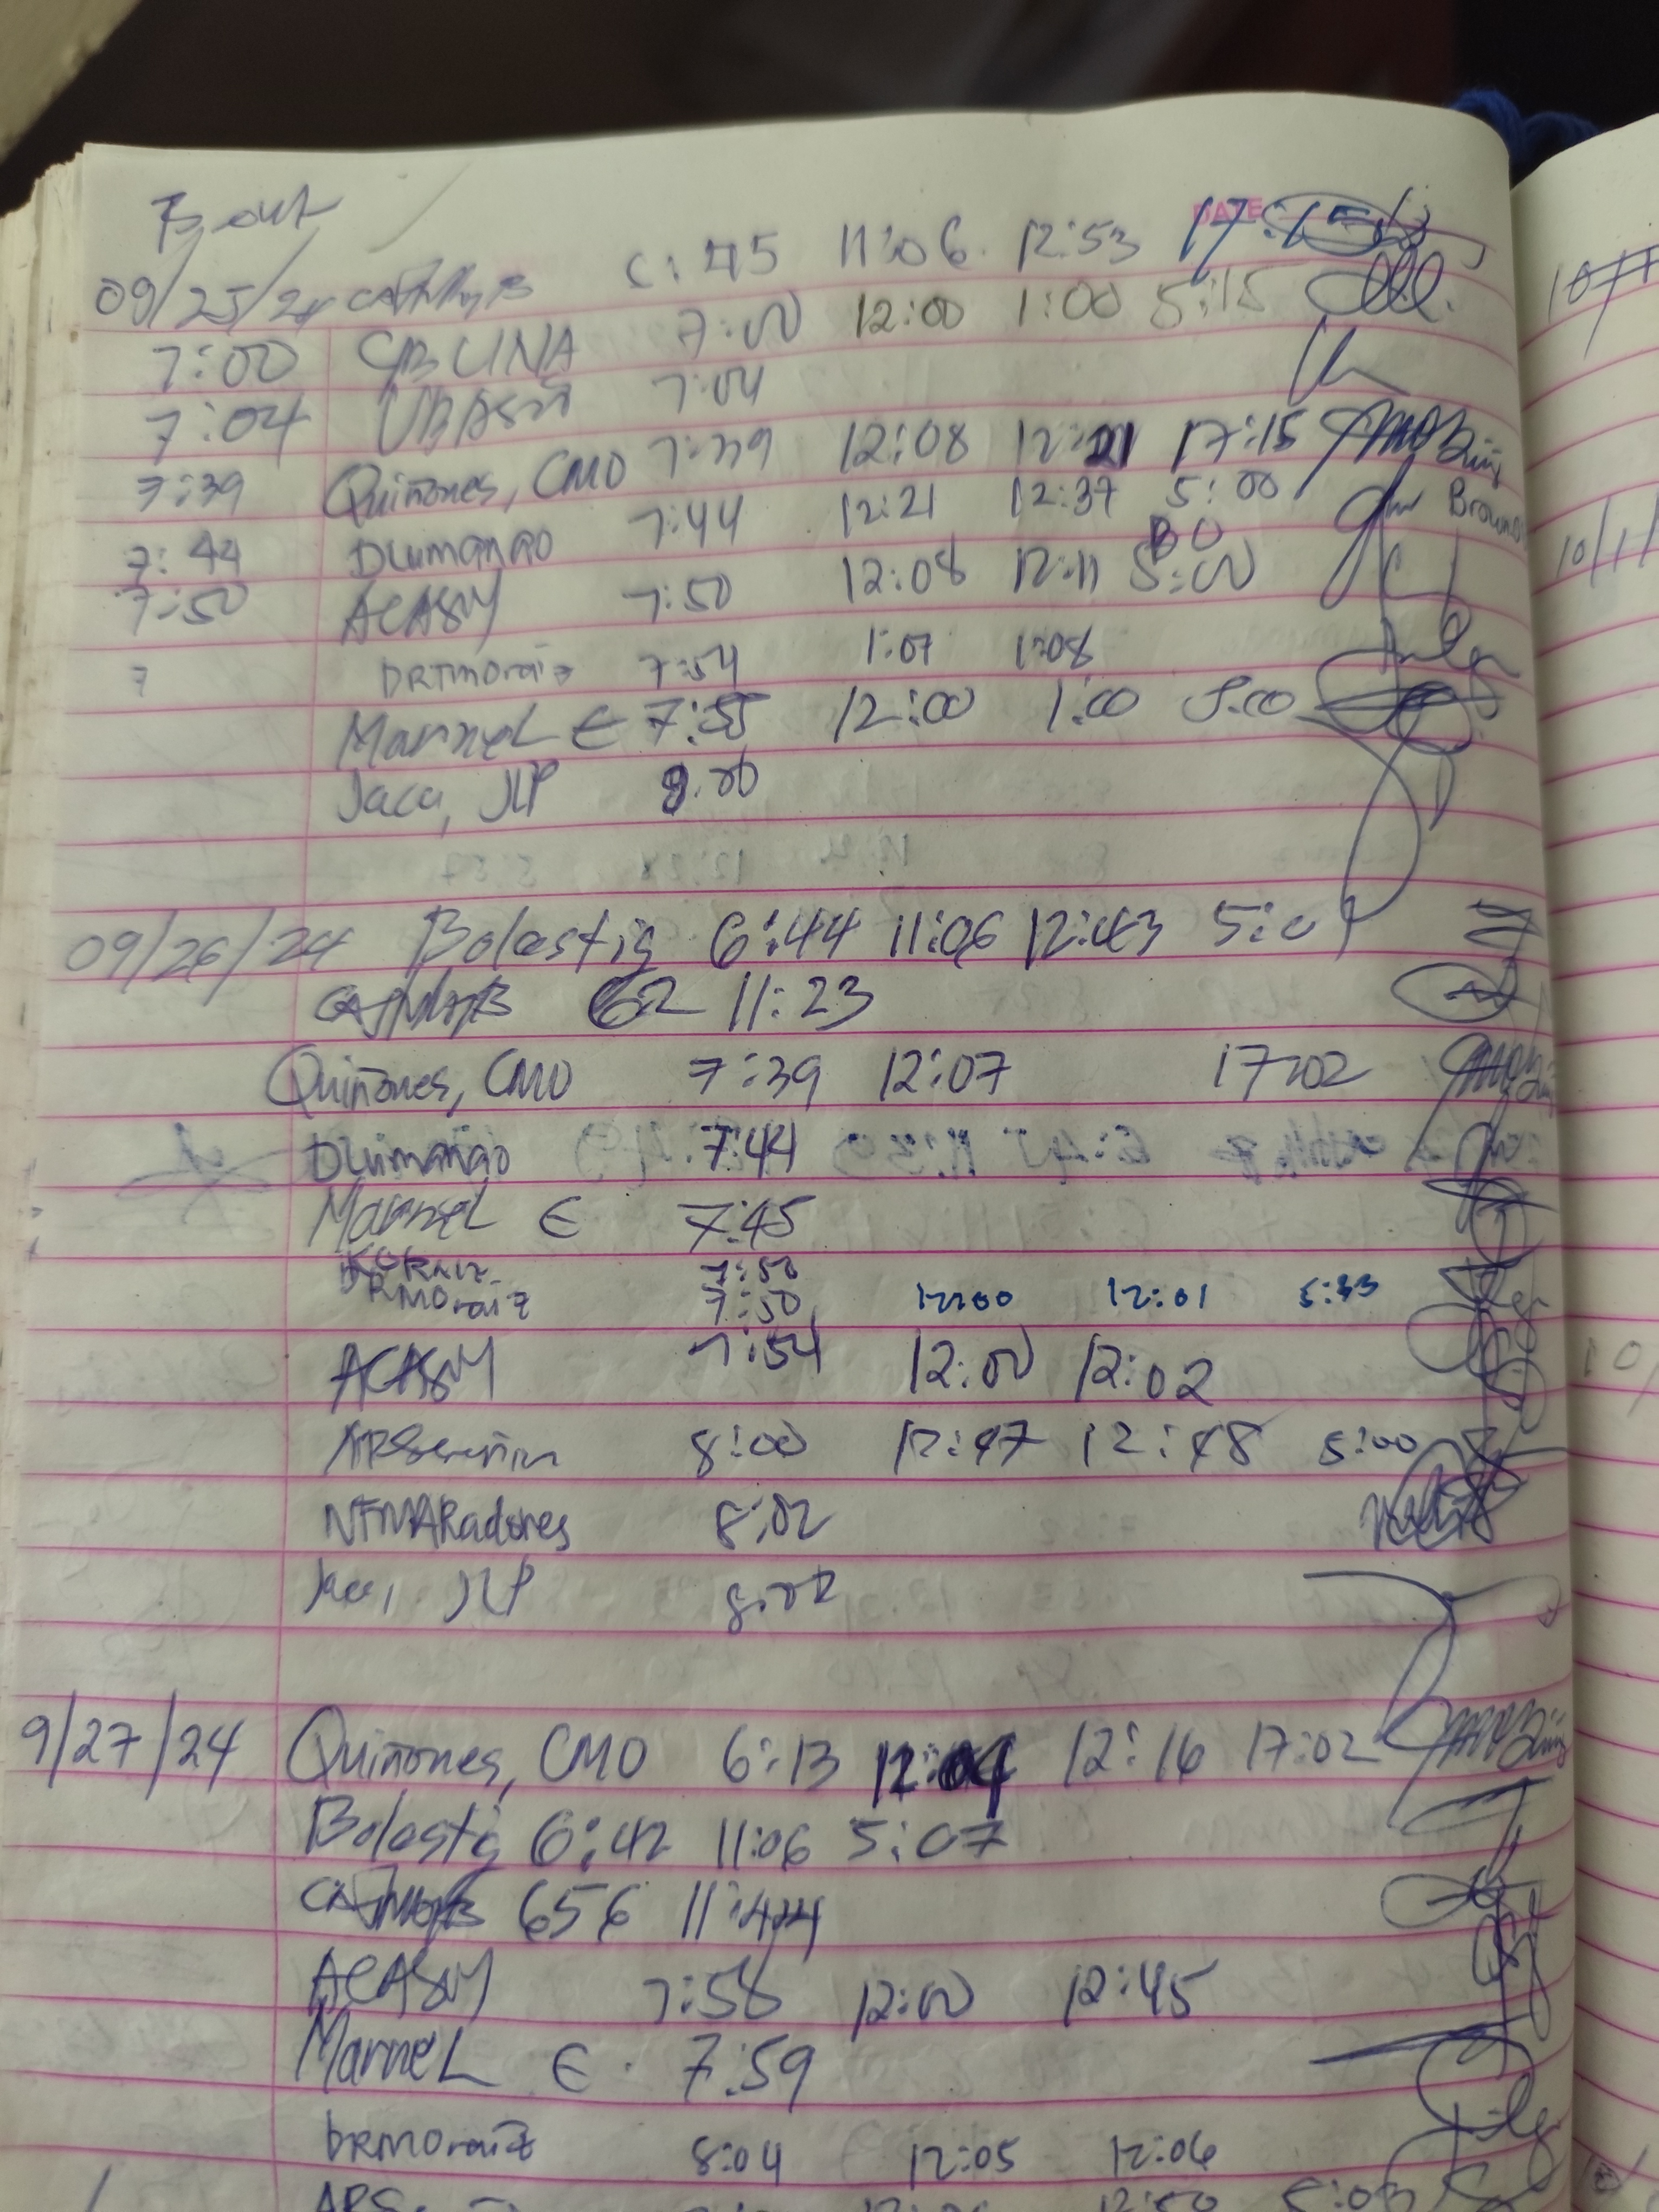 B out
DATE
09/25/24 6:45 11:06 12:53 17:15
7:00 7:00 12:00 1:00 5:15
7:04 7:04
7:39 Quiñones, CMO 7:39 12:08 12:21 17:15
7:44 DLumangao 7:44 12:21 12:37 5:00
Brownout
7:50 ACASM 7:50 12:08 12:11 5:00
7 DRTMoraiz 7:54 1:07 1:08
Marnel E 7:55 12:00 1:00 5:00
Jaca, JLP 8:00
09/26/24 Bolastig 6:44 11:06 12:43 5:07
11:23
Quiñones, CMO 7:39 12:07 17:02
DLumangao 7:44
Marnel E 7:45
7:50
DRMoraiz 7:50 12:00 12:01 5:33
ACASM 7:54 12:00 12:02
8:00 12:47 12:48 5:00
NFMARadores 8:02
Jaca, JLP 8:02
9/27/24 Quiñones, CMO 6:13 12:04 12:16 17:02
Bolastig 6:42 11:06 5:07
656 11:44
ACASM 7:58 12:00 12:45
Marnel E. 7:59
DRMOraiz 8:04 12:05 12:06
12:50 5:03
10/1/